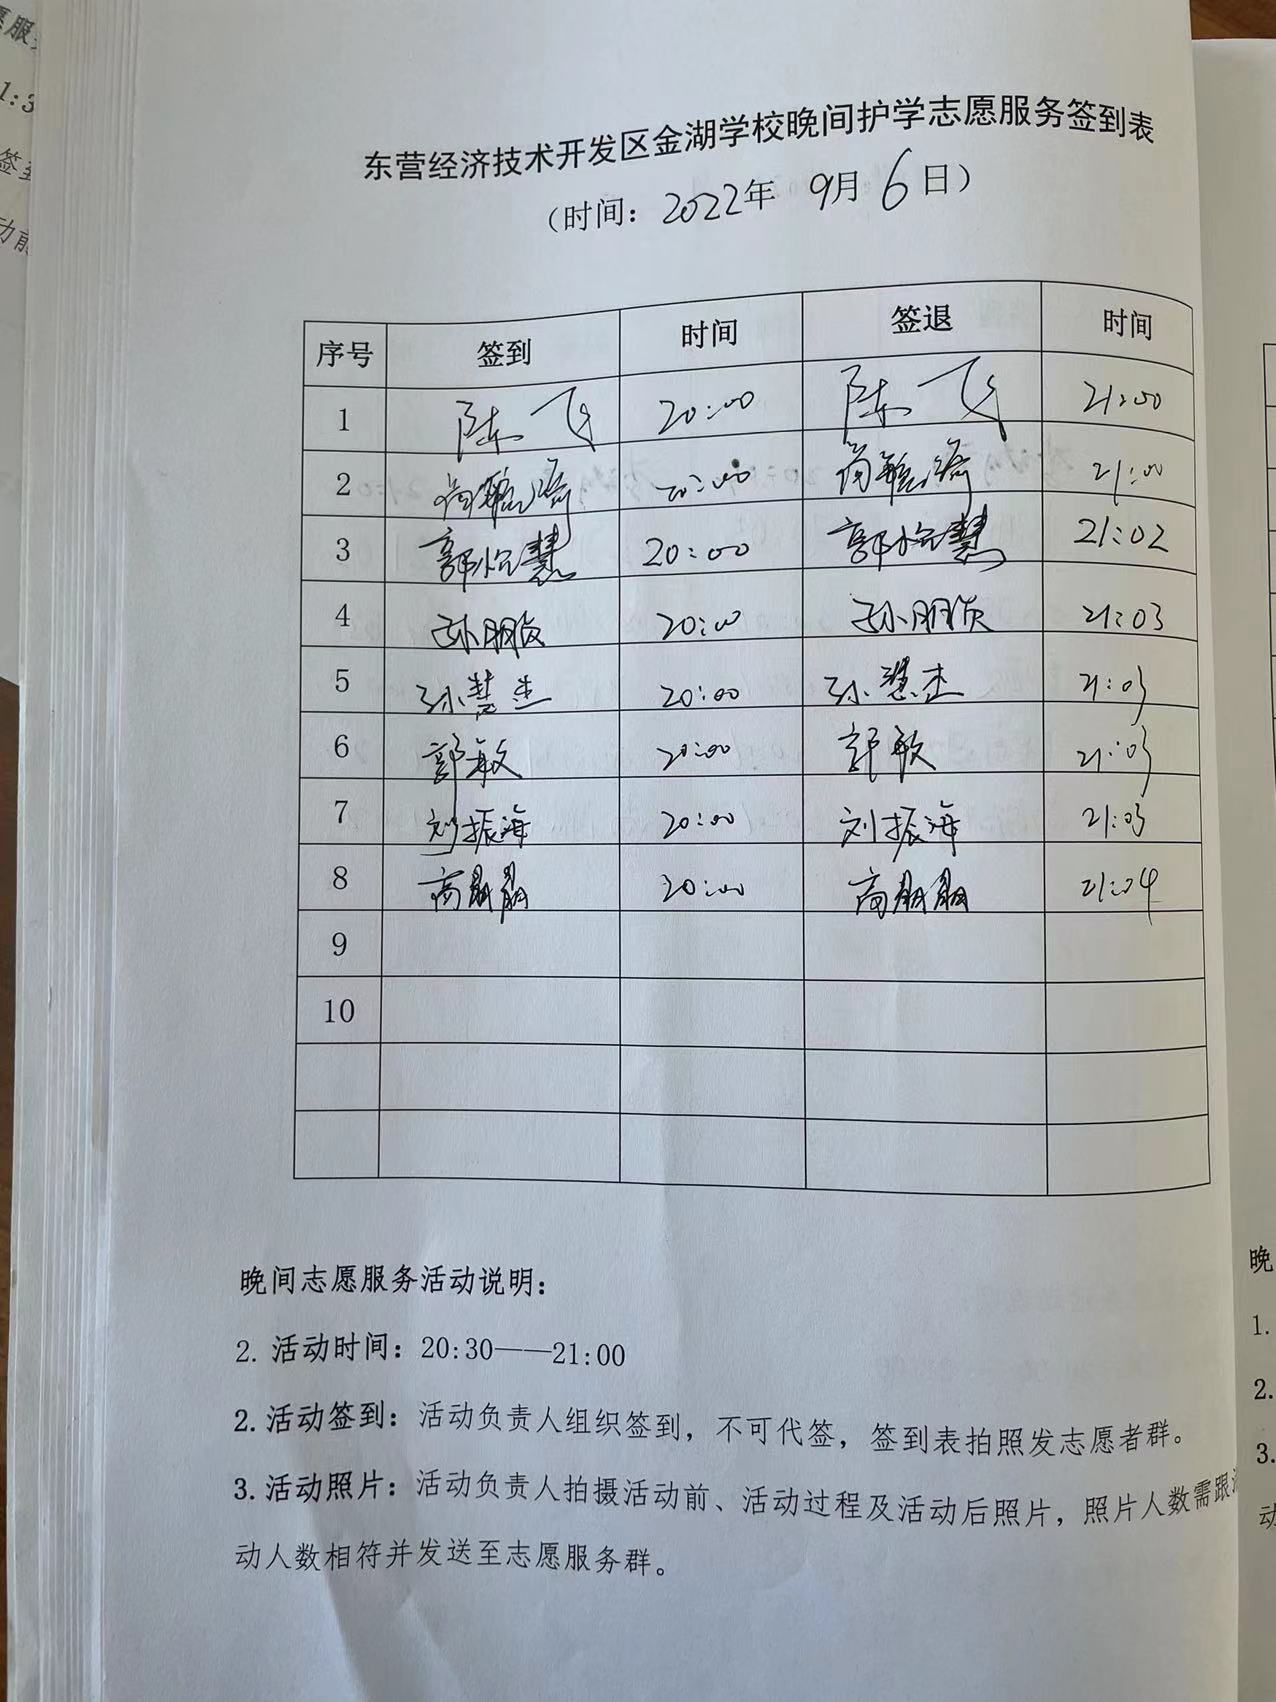 东营经济技术开发区金湖学校晚间护学志愿服务签到表
（时间：2022年 9月6日）
序号 签到 时间 签退 时间
1 陈飞 20:00 陈飞 21:00
2 20:00 21:00
3 郭怡慧 20:00 郭怡慧 21:02
4 孙朋 20:00 孙朋 21:03
5 孙慧杰 20:00 孙慧杰 21:03
6 郭敏 20:00 郭敏 21:03
7 刘振海 20:00 刘振海 21:03
8 高朋朋 20:00 高朋朋 21:04
9
10
晚间志愿服务活动说明：
2. 活动时间：20:30——21:00
2. 活动签到：活动负责人组织签到，不可代签，签到表拍照发志愿者群。
3. 活动照片：活动负责人拍摄活动前、活动过程及活动后照片，照片人数需跟
动人数相符并发送至志愿服务群。
晚
1.
2.
3.
动